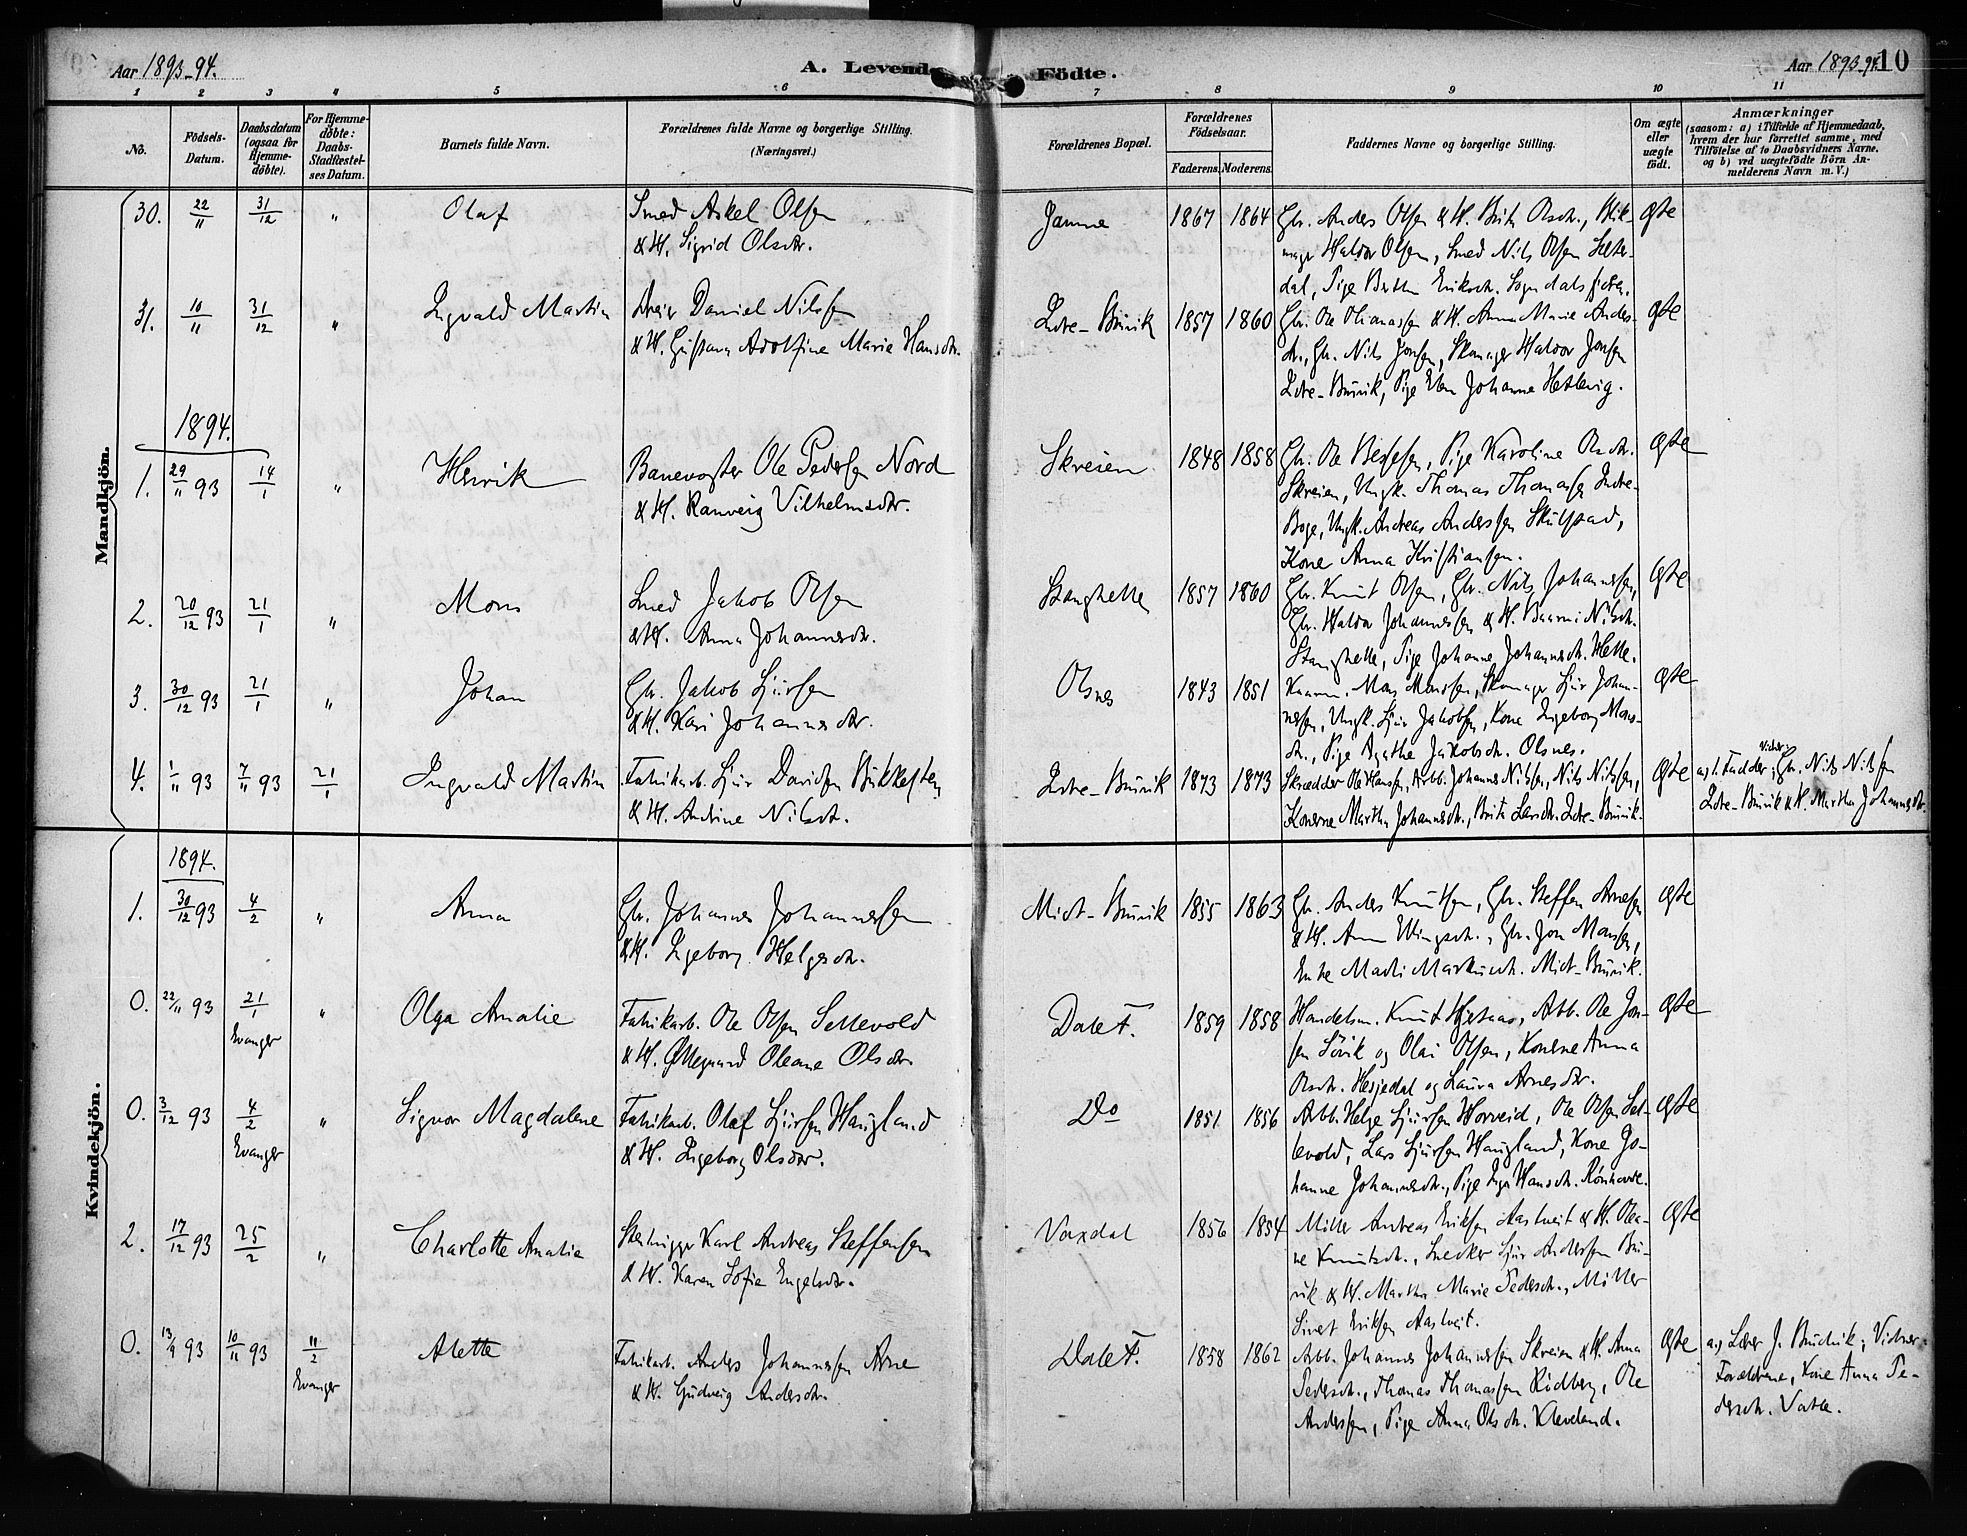 Aar 1893-94.
A. Levende Födte.
Aar 1893-94.
10
1 2 3 4 5 6 7 8 9 10 11
No.
Födsels-
Datum.
Daabsdatum
(ogsaa for
Hjemme-
döbte).
For Hjemme-
döbte:
Daabs-
Stadfæstel-
ses Datum.
Barnets fulde Navn.
Forældrenes fulde Navne og borgerlige Stilling.
(Næringsvei.)
Forældrenes Bopæl.
Forældrenes
Födselsaar.
Faderens.
Moderens.
Faddernes Navne og borgerlige Stilling.
Om ægte
eller
uægte
födt.
Anmærkninger
(saasom: a) i Tilfælde af Hjemmedaab,
hvem der har forrettet samme, med
Tilföielse af to Daabsvidners Navne,
og b) ved uægtefödte Börn An-
melderens Navn m. V.)
Mandkjön.
30. 22/11 31/12 " Olaf
Smed Askel Olsen
& H. Sigrid Olsdtr.
Jamne 1867 1864
Gbr. Anders Olsen & H. Brita Olsdtr.,
Haldor Olsen, Smed Nils Olsen Sæter-
dal, Pige Berthe Eriksdtr. Sogndalsfjæren.
Ægte
31. 10/11 31/12 " Ingvald Martin
Dreier Daniel Nilsen
& H. Gustava Adolfine Marie Hansdtr.
Indre-Bruvik 1857 1860
Gbr. Ole Olianassen & H. Anna Marie Anders-
dtr., Gbr. Nils Jonsen, Skomager Haldor Jonsen
Indre-Bruvik, Pige Johanne Hetlevig.
Ægte
1894.
1. 29/11 93 14/1 " Henrik
Banevogter Ole Pedersen Nord
& H. Ranveig Vilhelmsdtr.
Skreien 1848 1858
Gbr. Ole Pige Karoline Olsdtr.
Skreien, Ungk. Thomas Thomassen Indre-
Boge, Ungk. Andreas Andersen Skulstad,
Kone Anna Kristiansen.
Ægte
2. 20/12 93 21/1 " Mons
Smed Jakob Olsen
& H. Anna Johannesdtr.
Stanghelle 1857 1860
Gbr. Knut Olsen, Gbr. Nils Johannessen,
Gbr. Haldor Johannessen & H. Nilsdtr.
Stanghelle, Pige Johanne Johannesdtr. Helle.
Ægte
3. 30/12 93 21/1 " Johan
Gbr. Jakob Sjursen
& H. Kari Johannesdtr.
Olsnes 1843 1851
Kaarm. Mons Monsen, Skomager Sjur Johan-
nessen, Ungk. Sjur Jakobsen, Kone Ingeborg Mons-
dtr., Pige Agathe Jakobsdtr. Olsnes.
Ægte
4. 1/11 93 7/11 93 21/1 Ingvald Martin
Fabrikarb. Sjur Davidsen Bukkesten
& H. Andrine Nilsdtr.
Indre-Bruvik 1873 1873
Skrædder Ole Hansen, Arbb. Johannes Nilsen, Nils Nilsen,
Konerne Martha Johannesdtr., Brita Larsdtr. Indre-Bruvik.
Ægte
a, 1. Fadder; Vidner: Gbr. Nils Nilsen
Indre-Bruvik & H. Martha Johannesdtr.
Kvindekjön.
1894.
1. 30/12 93 4/2 " Anna
Gbr. Johannes Johannessen
& H. Ingeborg Helgesdtr.
Midt-Bruvik 1855 1863
Gbr. Anders Knutsen, Gbr. Steffen Arnesen
& H. Anna Gbr. Jon Monsen,
Enke Marthi Markusdtr. Midt-Bruvik.
Ægte
0. 22/11 93 21/1 Evanger " Olga Amalie
Fabrikarb. Ole Olsen Sellevold
& H. Øllegaard Oleane Olsdtr.
Dale F. 1859 1858
Handelsm. Knut Hjetaas, Arbb. Ole Jon-
sen Sørik og Olai Olsen, Konerne Anna
Olsdtr. Hesjedal og Laura Arnesdtr.
Ægte
0. 3/12 93 4/2 Evanger " Signor Magdalene
Fabrikarb. Olaf Sjursen Haugland
& H. Ingeborg Olsdtr.
Do 1851 1856
Arbb. Helge Sjursen Horveid, Ole Olsen Sel-
levold, Lars Sjursen Haugland, Kone Jo-
hanne Johannesdtr., Pige Inga Hansdtr. Rönhovde.
Ægte
2. 17/12 93 25/2 " Charlotte Amalia
Stenhugger Karl Andreas Steffensen
& H. Karen Sofie Engelsdtr.
Vaxdal 1856 1854
Möller Andreas Eriksen Aastveit & H. Olea-
ne Knutsdtr., Snedker Sjur Andersen Bru-
vik & H. Martha Marie Pedersdtr., Möller
Sivert Eriksen Aastveit.
Ægte
0. 13/9 93 10/11 93 11/2 Evanger Alette
Fabrikarb. Anders Johannessen Arne
& H. Gudveig Andersdtr.
Dale F. 1858 1862
Arbb. Johannes Johannessen Skreien & H. Anna
Pedersdtr., Thomas Thomassen Rödberg, Ole
Andersen, Pige Anna Olsdtr. Kleveland.
Ægte
a, Lærer J. Brudvik; Vidner:
Forældrene, Kone Anna Pe-
dersdtr. Vatle.